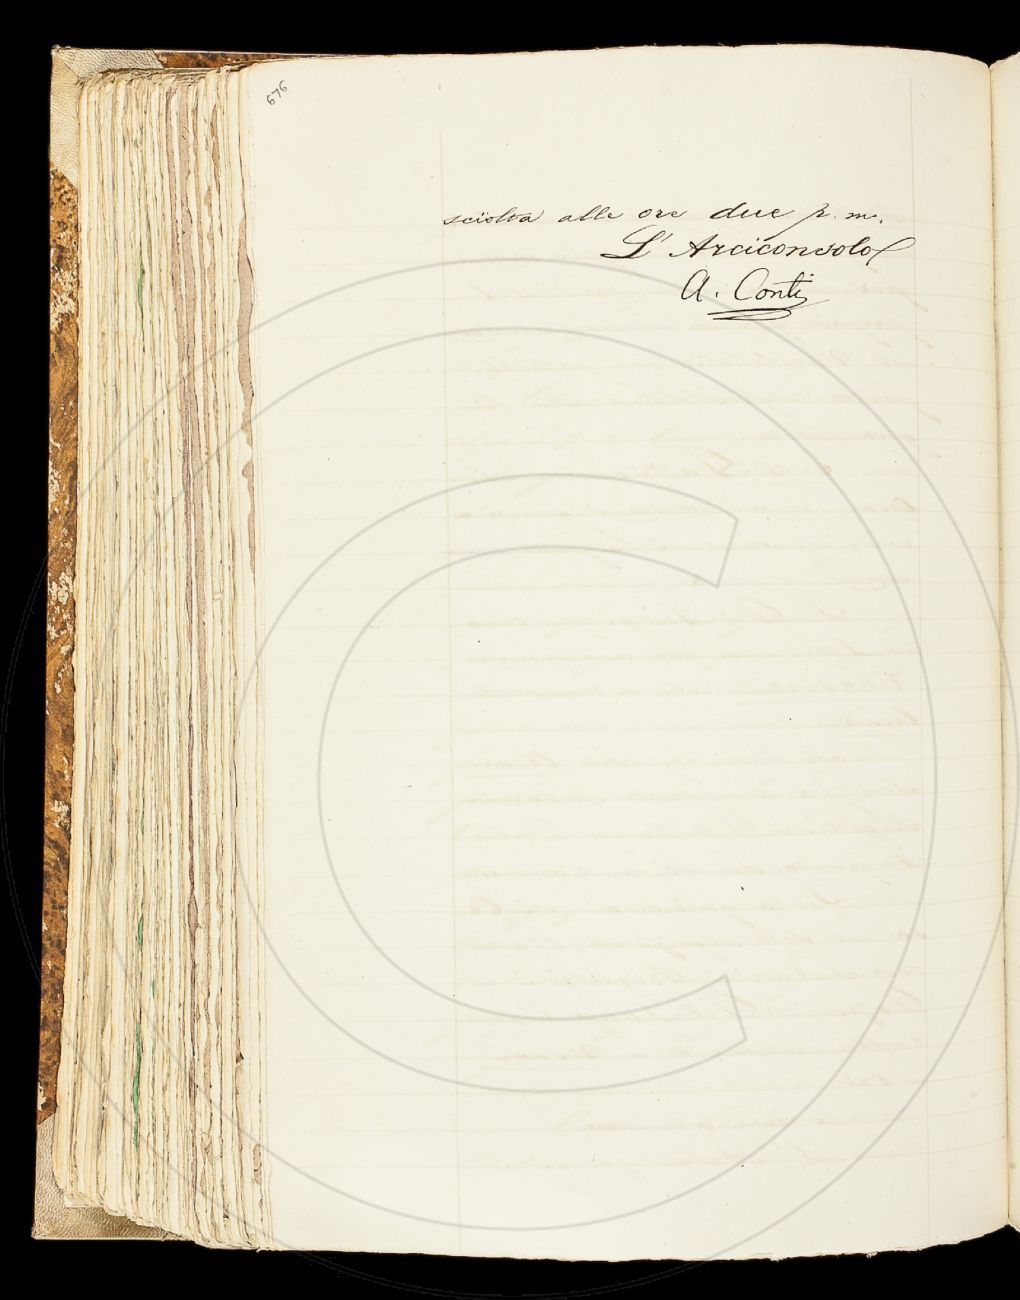 676
sciolta alle ore due p. m.
L' Arciconsolo
A. Conti